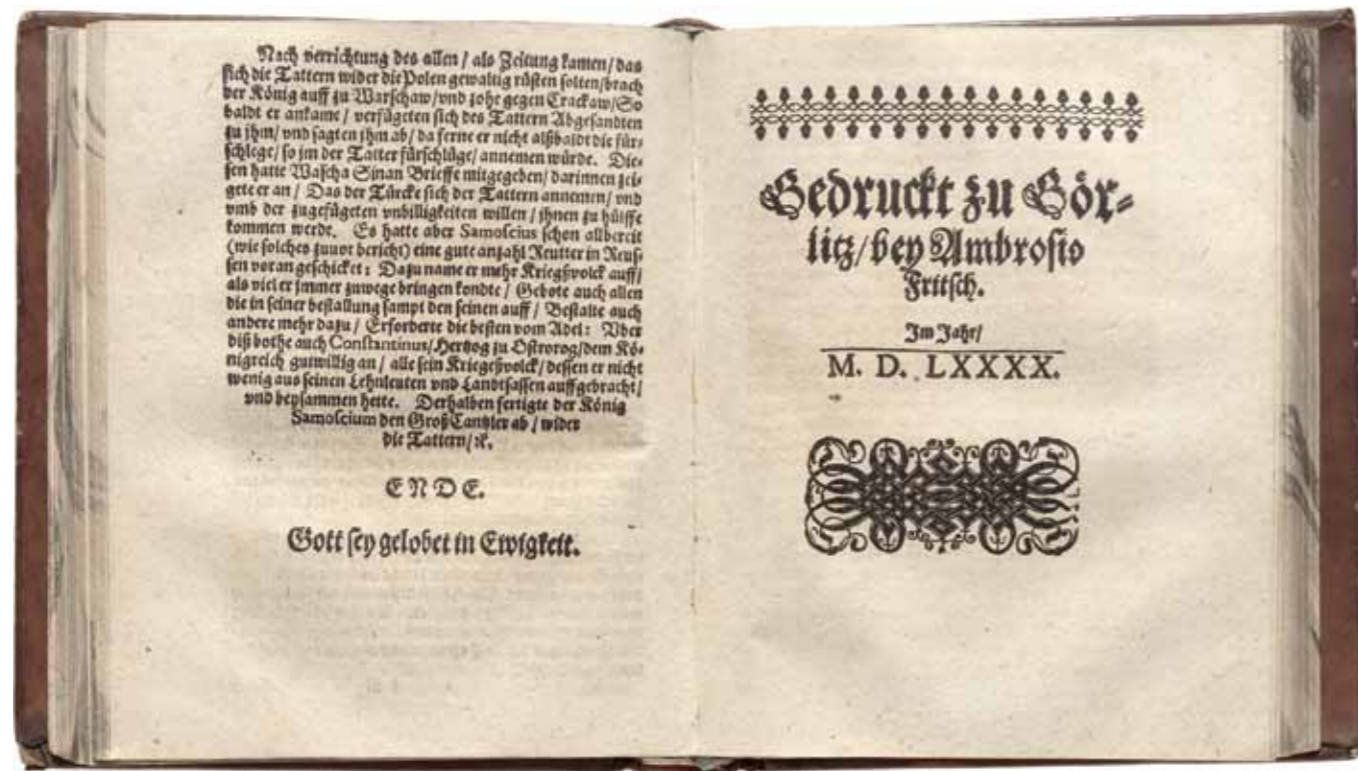 Nach verrichtung des allen / als Zeitung kamen / das
sich die Tattern wider die Polen gewaltig rüsten solten / brach
der König auff zu Warschaw / vnd zohe gegen Crackaw / So
baldt er ankame / verfügeten sich des Tattern Abgesandten
zu jhm / vnd sagten jhm ab / da ferne er nicht alßbaldt die für-
schlege / so jm der Tatter fürschlüge / annemen würde. Die-
sen hatte Wascha Sinan Brieffe mitgegeben / darinnen zei-
gete er an / Das der Türcke sich der Tattern annemen / vnd
vmb der zugefügeten vnbilligkeiten willen / jhnen zu hülffe
kommen werde. Es hatte aber Samoscius schon allbereit
(wie solches zuuor bericht) eine gute anzahl Reutter in Reus-
sen voran geschicket: Dazu name er mehr Kriegßvolck auff /
als viel er jmmer zuwege bringen kondte / Gebote auch allen
die in seiner bestallung sampt den seinen auff / Bestalte auch
andere mehr dazu / Erforderte die besten vom Adel: Vber
diß bothe auch Constantinus / Hertzog zu Ostrorog / dem Kö-
nigreich gutwillig an / alle sein Kriegeßvolck / dessen er nicht
wenig aus seinen Lehnleuten vnd Landtsassen auffgebracht /
vnd beysammen hette. Derhalben fertigte der König
Samoscium den Groß Cantzler ab / wider
die Tattern / ꝛc.
ENDE.
Gott sey gelobet in Ewigkeit.
Gedruckt zu Gör-
litz / bey Ambrosio
Fritsch.
Im Jahr /
M. D. LXXXX.